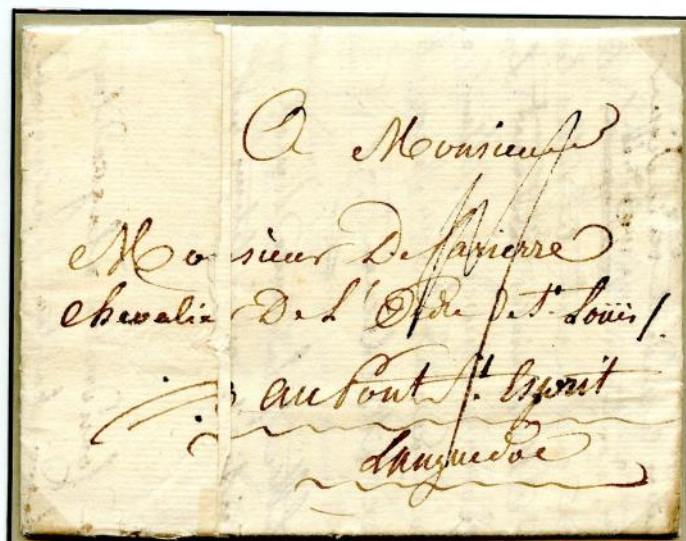 A Monsieur
Monsieur Delapierre
Chevalier De L'Ordre De St. Louis
au Pont St. Esprit
Languedoc